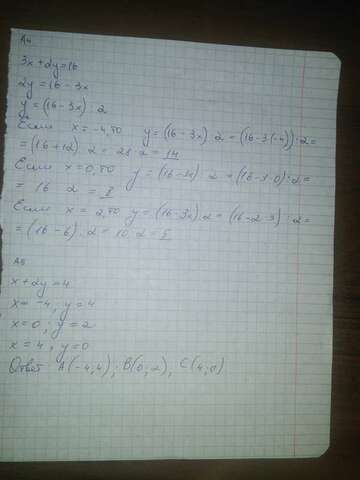 А4
3x + 2y = 16
2y = 16 - 3x
y = (16 - 3x) : 2
Если x = -4, то y = (16 - 3x) : 2 = (16 - 3·(-4)) : 2 =
= (16 + 12) : 2 = 28 : 2 = 14
Если x = 0, то y = (16 - 3x) : 2 = (16 - 3·0) : 2 =
= 16 : 2 = 8
Если x = 2, то y = (16 - 3x) : 2 = (16 - 2·3) : 2 =
= (16 - 6) : 2 = 10 : 2 = 5
А5
x + 2y = 4
x = -4; y = 4
x = 0; y = 2
x = 4, y = 0
Ответ A(-4;4); B(0;2), C(4;0)